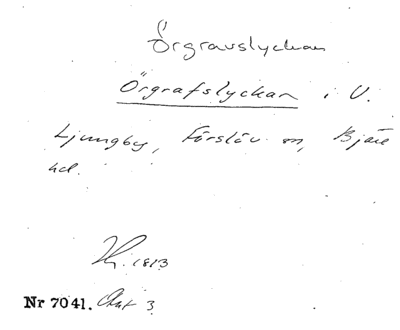 Örgravslyckan
Örgrafslyckan i V.
Ljungby, Förslöv sn, Bjäre
hd.
1813
Nr 7041. Akt 3